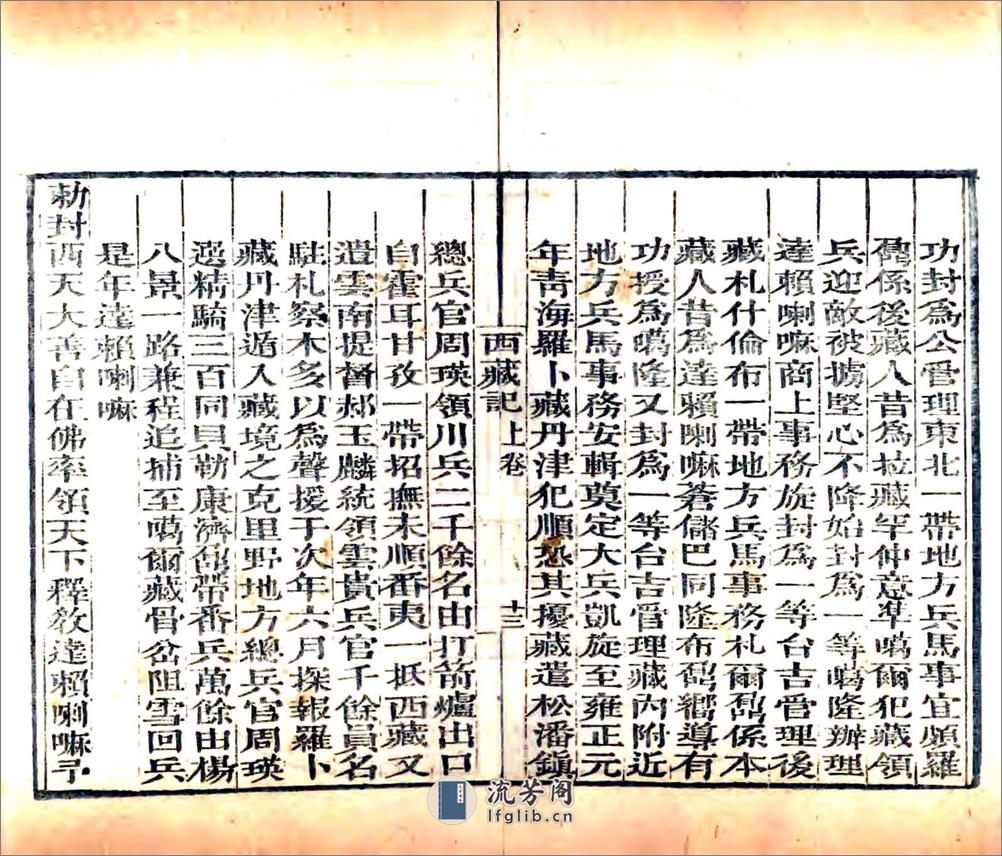 功封爲公管理東北一帶地方兵馬事宜頗羅
鼐係後藏人昔爲拉藏罕仲意凖噶爾犯藏領
兵迎敵被擄堅心不降始封爲一等噶隆辦理
達賴喇嘛商上事務旋封爲一等台吉管理後
藏札什倫布一帶地方兵馬事務札爾鼐係本
藏人昔爲達賴喇嘛蒼儲巴同隆布鼐嚮導有
功授爲噶隆又封爲一等台吉管理藏內附近
地方兵馬事務安輯奠定大兵凱旋至雍正元
年青海羅卜藏丹津犯順恐其擾藏遣松潘鎮
西藏記 上卷 十三
總兵官周瑛領川兵二千餘名由打箭爐出口
自霍耳甘孜一帶招撫未順番夷一抵西藏又
遣雲南提督郝玉麟統領雲貴兵官千餘員名
駐札察木多以爲聲援于次年六月探報羅卜
藏丹津遁入藏境之克里野地方總兵官周瑛
選精騎三百同貝勒康濟鼐帶番兵萬餘由楊
八景一路兼程追捕至噶爾藏骨岔阻雪回兵
是年達賴喇嘛
勅封西天大善自在佛率領天下釋教達賴喇嘛予
流芳阁
lfglib.cn